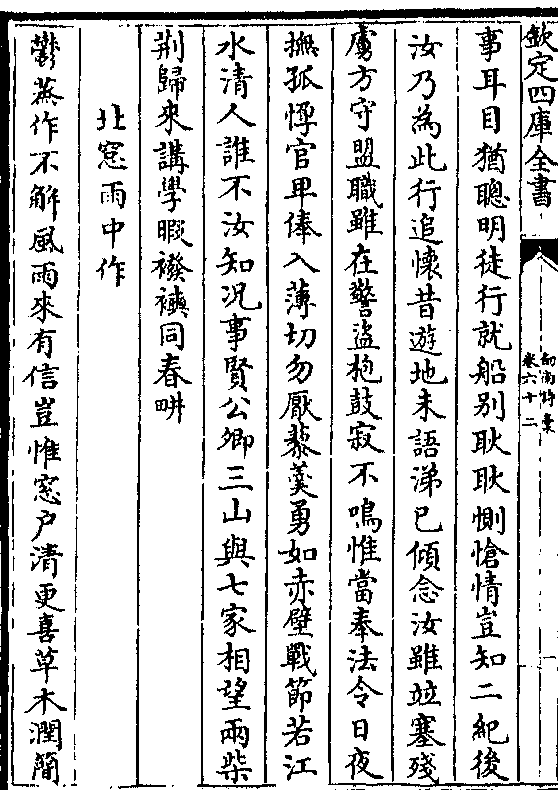 欽定四庫全書
劍南詩稾
卷六十二
事耳目猶聰明徒行就船别耿耿惻愴情豈知二紀後
汝乃為此行追懷昔遊地未語涕已傾念汝雖竝塞殘
虜方守盟職雖在警盜枹鼓寂不鳴惟當奉法令日夜
撫孤惸官卑俸入薄切勿厭藜羮勇如赤壁戰節若江
水清人誰不汝知况事賢公卿三山與七家相望兩柴
荆歸來講學暇襏襫同春畊
北窓雨中作
鬱蒸作不解風雨來有信豈惟窓户清更喜草木潤簡